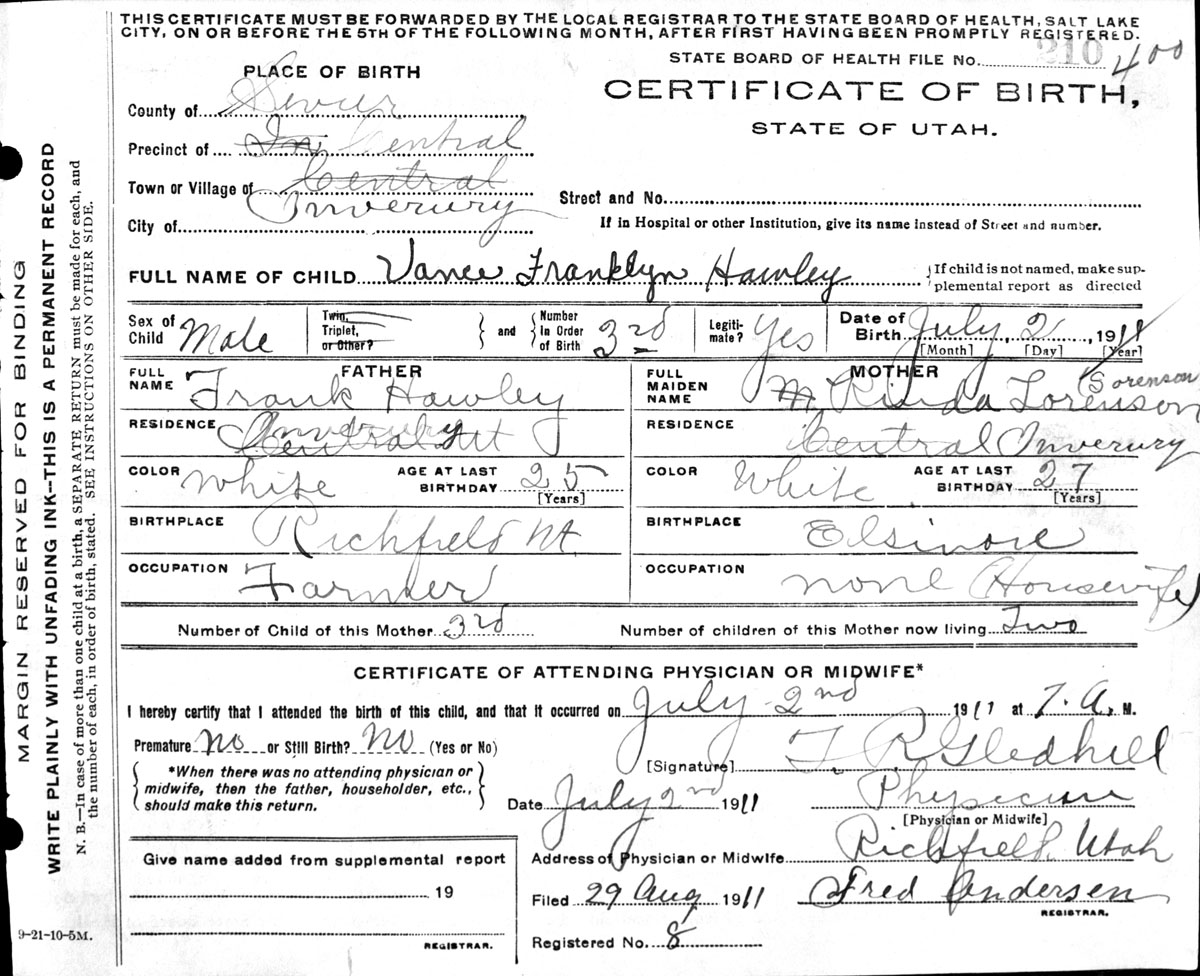 THIS CERTIFICATE MUST BE FORWARDED BY THE LOCAL REGISTRAR TO THE STATE BOARD OF HEALTH, SALT LAKE
CITY, ON OR BEFORE THE 5TH OF THE FOLLOWING MONTH, AFTER FIRST HAVING BEEN PROMPTLY REGISTERED.
STATE BOARD OF HEALTH FILE No. 210 400
PLACE OF BIRTH
CERTIFICATE OF BIRTH,
STATE OF UTAH.
County of Sevier
Precinct of In Central
Town or Village of Central
Inverury
City of
Street and No.
If in Hospital or other Institution, give its name instead of Street and number.
FULL NAME OF CHILD Vance Franklyn Hawley
If child is not named, make sup-
plemental report as directed
Sex of Child Male
Twin, Triplet, or Other?
and
Number In Order of Birth 3rd
Legiti- mate? Yes
Date of Birth July, 2, 1911
[Month] [Day] [Year]
FATHER
FULL NAME Frank Hawley
RESIDENCE Central Ut Inverury
COLOR White AGE AT LAST BIRTHDAY 25
[Years]
BIRTHPLACE Richfield Ut.
OCCUPATION Farmer
MOTHER
FULL MAIDEN NAME M. Rinda Lorenson (Sorenson
RESIDENCE Central Inverury
COLOR White AGE AT LAST BIRTHDAY 27
[Years]
BIRTHPLACE Elsinore
OCCUPATION none (Housewife)
Number of Child of this Mother 3rd Number of children of this Mother now living Two
CERTIFICATE OF ATTENDING PHYSICIAN OR MIDWIFE*
I hereby certify that I attended the birth of this child, and that it occurred on July 2nd 1911 at 7. A. M.
Premature no or Still Birth? No (Yes or No)
*When there was no attending physician or
midwife, then the father, householder, etc.,
should make this return.
[Signature] T R Gledhill
Date July 2nd 1911 Physician
[Physician or Midwife]
Address of Physician or Midwife Richfield. Utah
Filed 29 Aug 1911 Fred Andersen
REGISTRAR.
Registered No. 8
Give name added from supplemental report
19
REGISTRAR.
9-21-10-5M.
MARGIN RESERVED FOR BINDING
WRITE PLAINLY WITH UNFADING INK—THIS IS A PERMANENT RECORD
N. B.—In case of more than one child at a birth, a SEPARATE RETURN must be made for each, and
the number of each, in order of birth, stated. SEE INSTRUCTIONS ON OTHER SIDE.